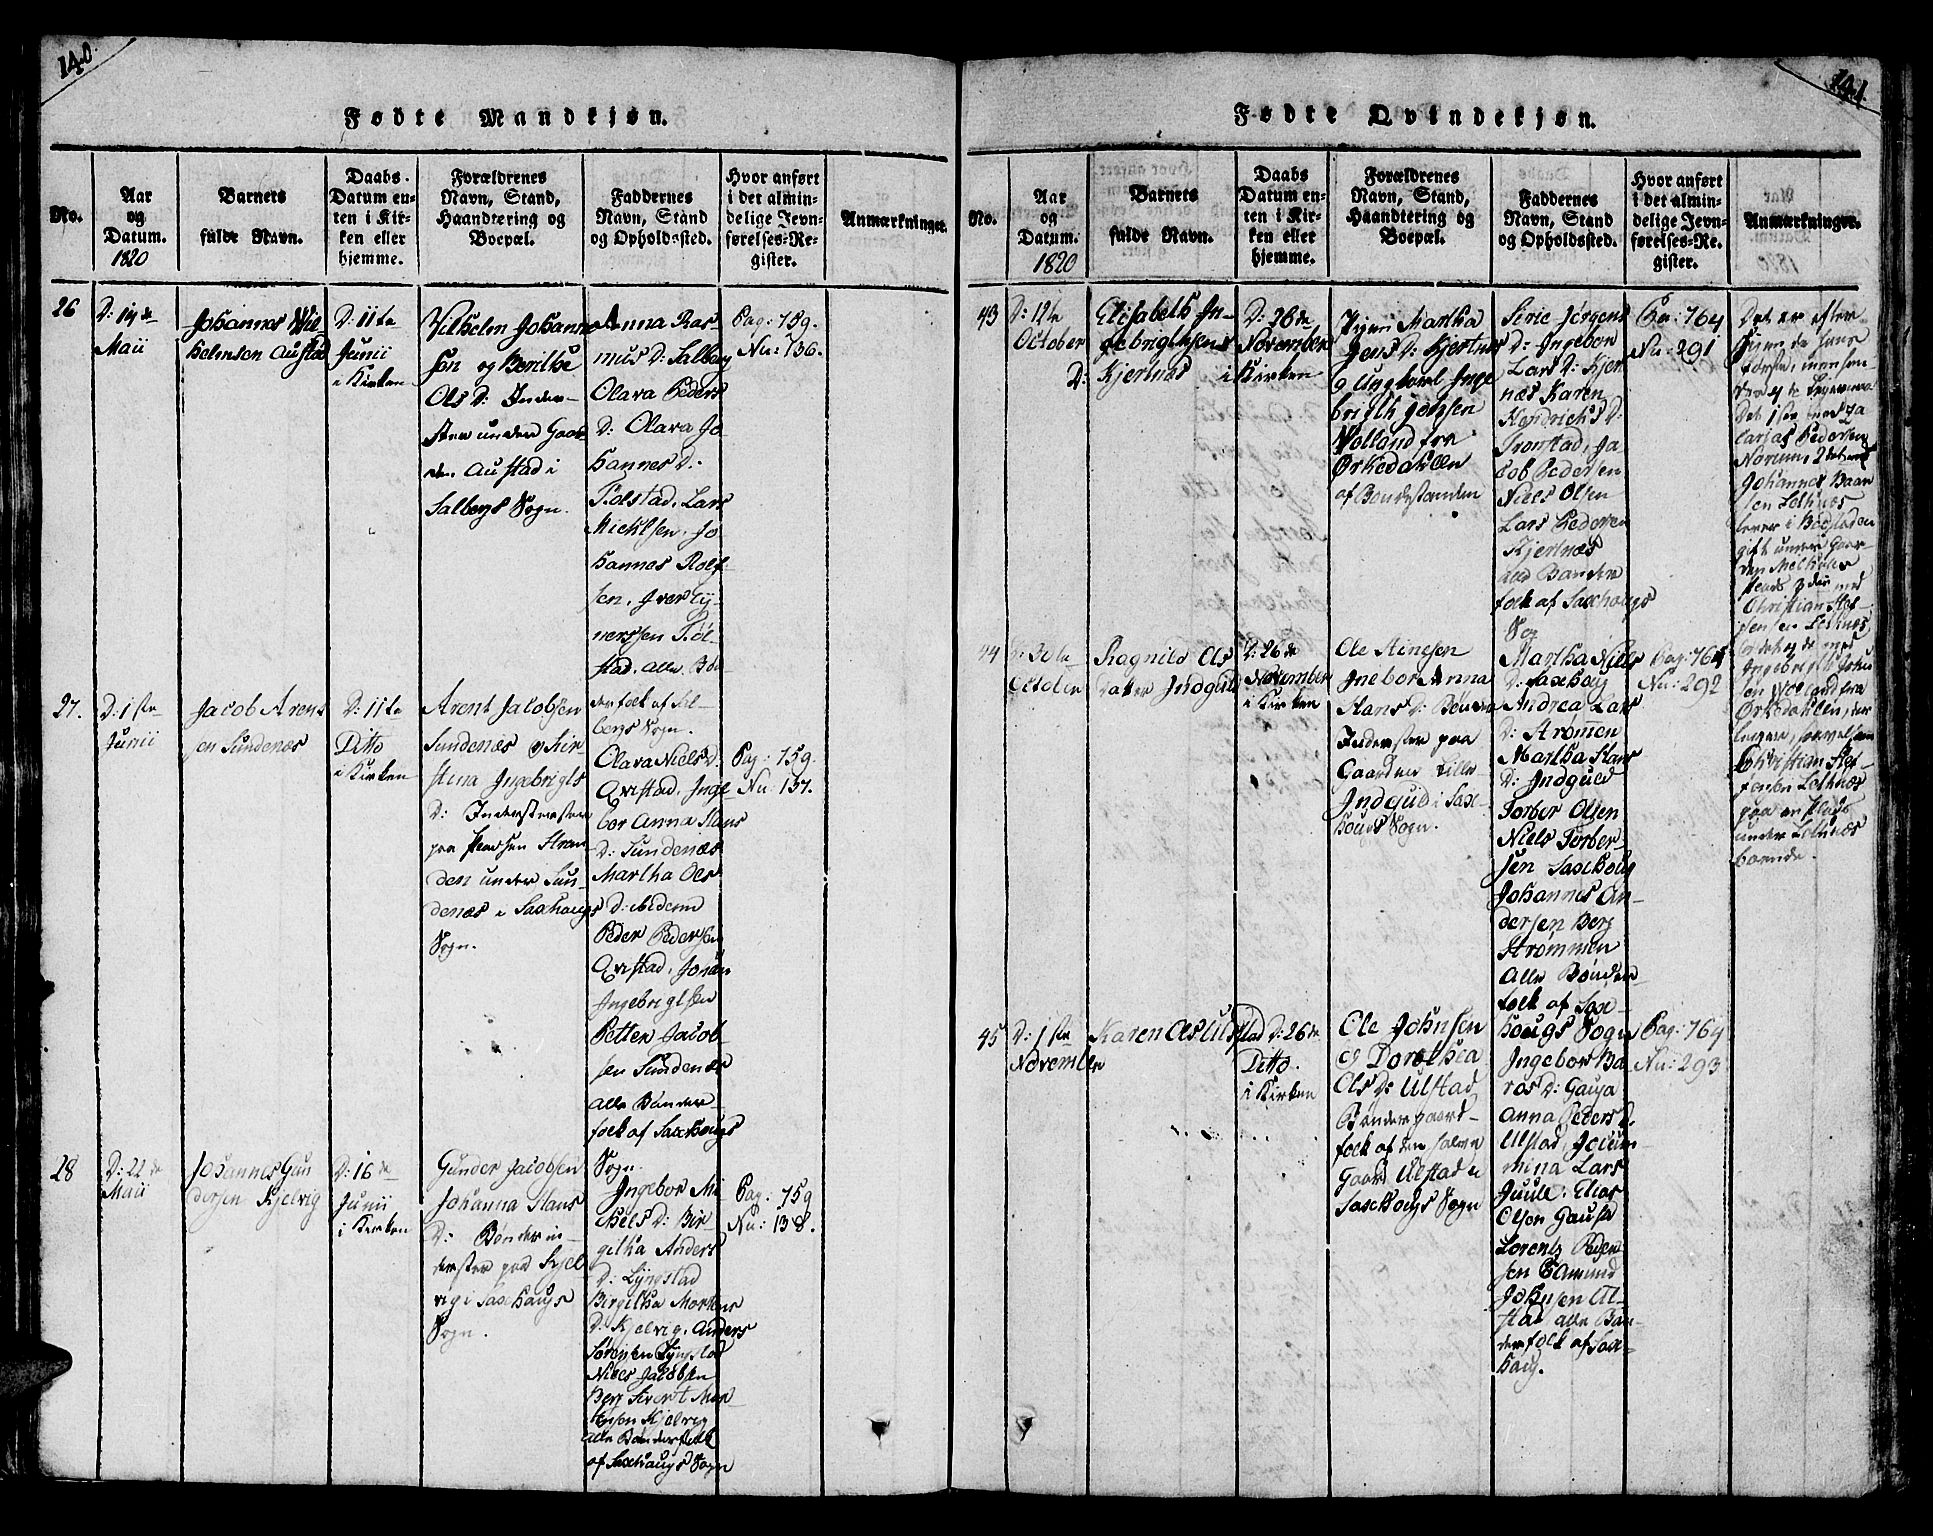 140
Fødte Mandkjøn.
No.
Aar
og
Datum.
1820
Barnets
fulde Navn.
Daabs-
Datum en-
ten i Kir-
ken eller
hjemme.
Forældrenes
Navn, Stand,
Haandtering og
Boepæl.
Faddernes
Navn, Stand
og Opholdssted.
Hvor anført
i det almin-
delige Jevn-
førelses-Re-
gister.
Anmærkninger.
26
D: 14de
Maii
Johannes Wil-
helmsen Austad
D: 11te
Junii
i Kirken
Vilhelm Johann-
sen og Berithe
Ols D: Inder-
ster under Gaar-
den Austad i
Salbergs Sogn.
Anna Ras-
mus D: Salberg
Olava Peders
D: Olava Jo-
hannes D:
Tolstad, Lars
Mickelsen, Jo
hannes Rolf-
sen, Iver Ey-
nerssen Tøl-
stad, alle Bøn-
derfolk af Sal-
bergs Sogn.
Pag: 759.
Nu: 136.
27.
D: 1ste
Junii
Jacob Arent
sen Sundenæs
D: 11te
Ditto
i Kirken
Arent Jacobsen
Sundenæs og Kir-
stina Ingebrigts
D: Inderster
paa Pladsen Stran-
den under Sun-
denæs i Saxhougs
Sogn.
Olava Niels D:
Qvistad, Inge-
bor Anna Hans
D: Sundenæs
Martha Ols
D: ibidem
Peder Pedersen
Qvistad, Johan
Ingebrigtsen
Petter Jacob-
sen Sundenæs
alle Bønder-
folk af Saxhougs
Sogn.
Pag: 759.
Nu: 137.
28
D: 22de
Maii
Johannes Gun
dersen Kjelvig
D: 16de
Junii
i Kirken
Gunder Jacobsen
Johanna Hans
D: Bønder in-
derster paa Kjel
vig i Saxhougs
Sogn.
Ingebor Mi
chels D: Bir-
githa Anders
D: Lyngstad
Birgitha Mortens
D: Kjelvig, Anders
Sørensen Lyngstad
Niels Jacobsen
Berg Sivert Mor
tensen Kjelvig
alle Bønderfolk
af Saxhougs Sogn
Pag: 759
Nu: 138.
141.
Fødte Qvindekjøn.
No.
Aar
og
Datum.
1820
Barnets
fulde Navn.
Daabs
Datum en-
ten i Kir-
ken eller
hjemme.
Forældrenes
Navn, Stand,
Haandtering og
Boepæl.
Faddernes
Navn, Stand
og Opholdssted.
Hvor anført
i det almin-
delige Jevn-
førelses-Re-
gister.
Anmærkninger.
43
D: 12te
October
Elisabeth In-
gebrigtsens
D: Kjertnæs
D: 26de
November
i Kirken
Pigen Martha
Jens D: Kjertnæs
og Ungkarl Inge
brigth Johnsen
Volland fra
Ørkedahlen
af Bondestanden
Siric Jørgens
D: Ingebor
Lars D: Kjer
næs Karen
Hendrichs D:
Tronstad, Ja
cob Pedersen
Niels Olsen
Lars Pedersen
Kjertnæs
alle Bønder
folk af Saxhougs
Sog
Pag: 764
Nu: 291
Det er efter
hans
første, men hen
des 4de Leiermaal
Det 1ste med Za
carias Pedersen
Norum, 2det med
Johannes
sen Lothnæs
gift under Gaar
den
Plads 3die med
Christian Stef-
fensen Lothnæs,
og det 4de med
Ingebrigth John
sen Volland fra
Ørkedahlen,
Christian Stef
fensen Lothnæs
paa en Plads
under Lothnæs
boende.
44
D: 30te
October
Ragnild Ols
Datter Indguld
D: 26de
November
i Kirken
Ole Ainesen
Inebor Anna
Hans D: Bønder
Inderster paa
Gaarden Lille
Indguld i Sax-
hougs Sogn.
Martha Niels
D: Saxhoug
Andrea Lars
D: Strømen
Martha Hans
D: Indguld
Torber Olsen
Niels Torber-
sen Saxhoug
Johannes An-
dersen Berg
Strømmen
Alle Bønder
folk af Sax-
hougs Sogn
Pag: 764
Nu: 292
45
D: 1ste
November
Karen Ols Ulstad
D: 26de
Ditto.
i Kirken
Ole Johnsen
og Dorothea
Ols D: Ulstad
Bønder gaard-
folk af den halve
Gaard Ulstad i
Saxhougs Sogn
Ingebor Ba
ros D: Gausa
Anna Peders D.
Ulstad
mina Lars
Juule, Elias
Olsen Gausa
Lorents Peder
sen Edmund
Johnsen Ul-
stad alle Bøn-
derfolk af Sax-
houg.
Pag: 764
Nu: 293